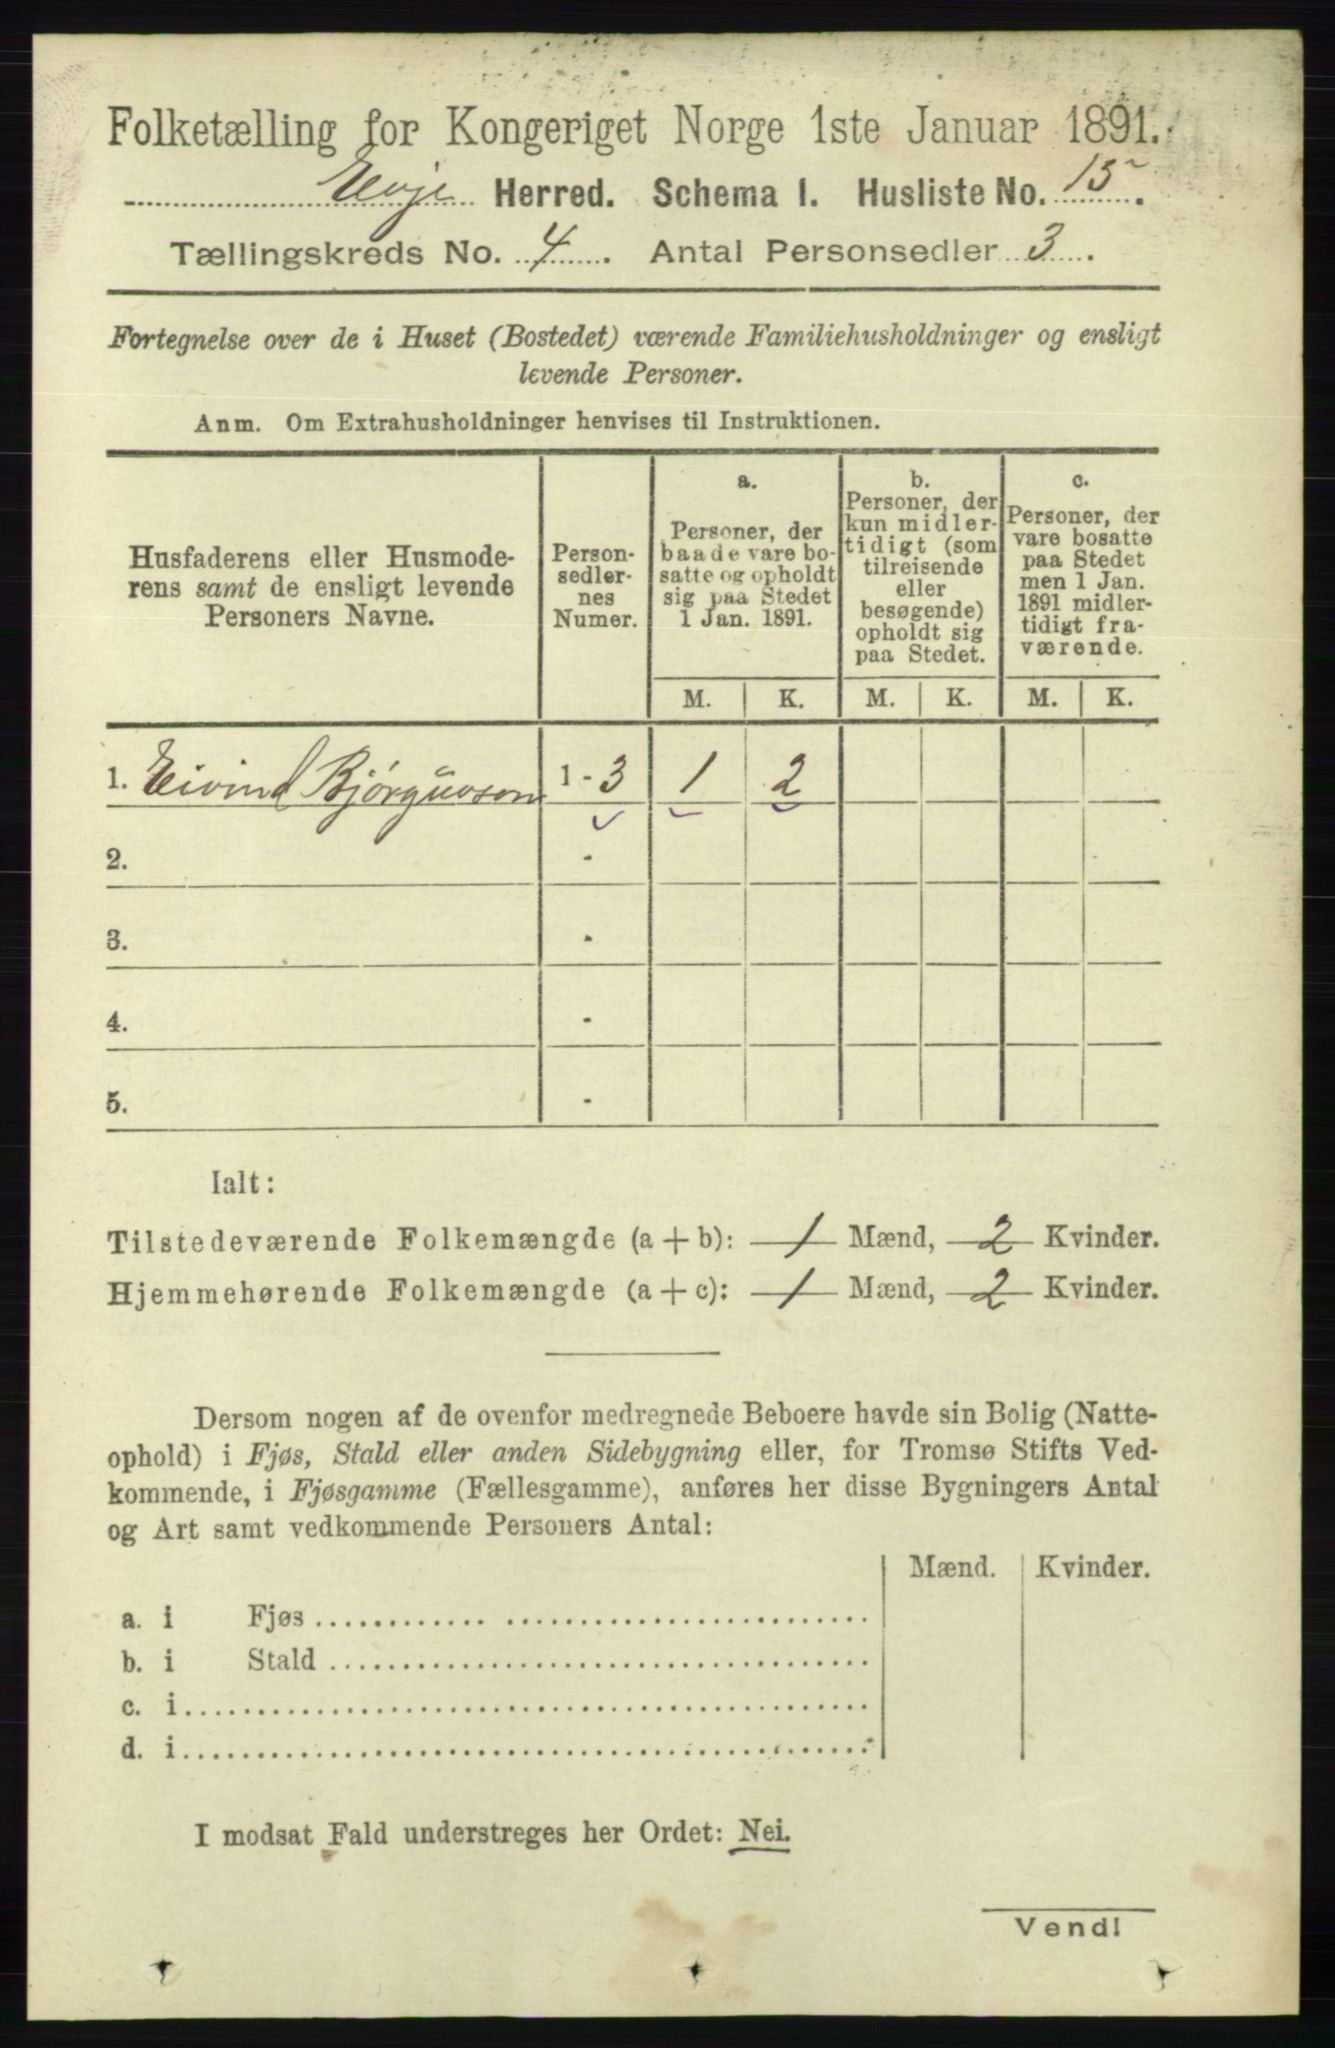 Folketælling for Kongeriget Norge 1ste Januar 1891.
Evje Herred. Schema I. Husliste No. 15.
Tællingskreds No. 4. Antal Personsedler 3.
Fortegnelse over de i Huset (Bostedet) værende Familiehusholdninger og ensligt
levende Personer.
Anm. Om Extrahusholdninger henvises til Instruktionen.
Husfaderens eller Husmode-
rens samt de ensligt levende
Personers Navne.
Person-
sedler-
nes
Numer.
a.
Personer, der
baade vare bo-
satte og opholdt
sig paa Stedet
1 Jan. 1891.
b.
Personer, der
kun midler-
tidigt (som
tilreisende
eller
besøgende)
opholdt sig
paa Stedet.
c.
Personer, der
vare bosatte
paa Stedet
men 1 Jan.
1891 midler-
tidigt fra-
værende.
M. K. M. K. M. K.
1. Eivind Bjørguvson 1 - 3 1 2
2. -
3. -
4. -
5. -
Ialt:
Tilstedeværende Folkemængde (a + b): 1 Mænd, 2 Kvinder.
Hjemmehørende Folkemængde (a + c): 1 Mænd, 2 Kvinder.
Dersom nogen af de ovenfor medregnede Beboere havde sin Bolig (Natte-
ophold) i Fjøs, Stald eller anden Sidebygning eller, for Tromsø Stifts Ved-
kommende, i Fjøsgamme (Fællesgamme), anføres her disse Bygningers Antal
og Art samt vedkommende Personers Antal:
Mænd. Kvinder.
a. i Fjøs
b. i Stald
c. i
d. i
I modsat Fald understreges her Ordet: Nei.
Vend!